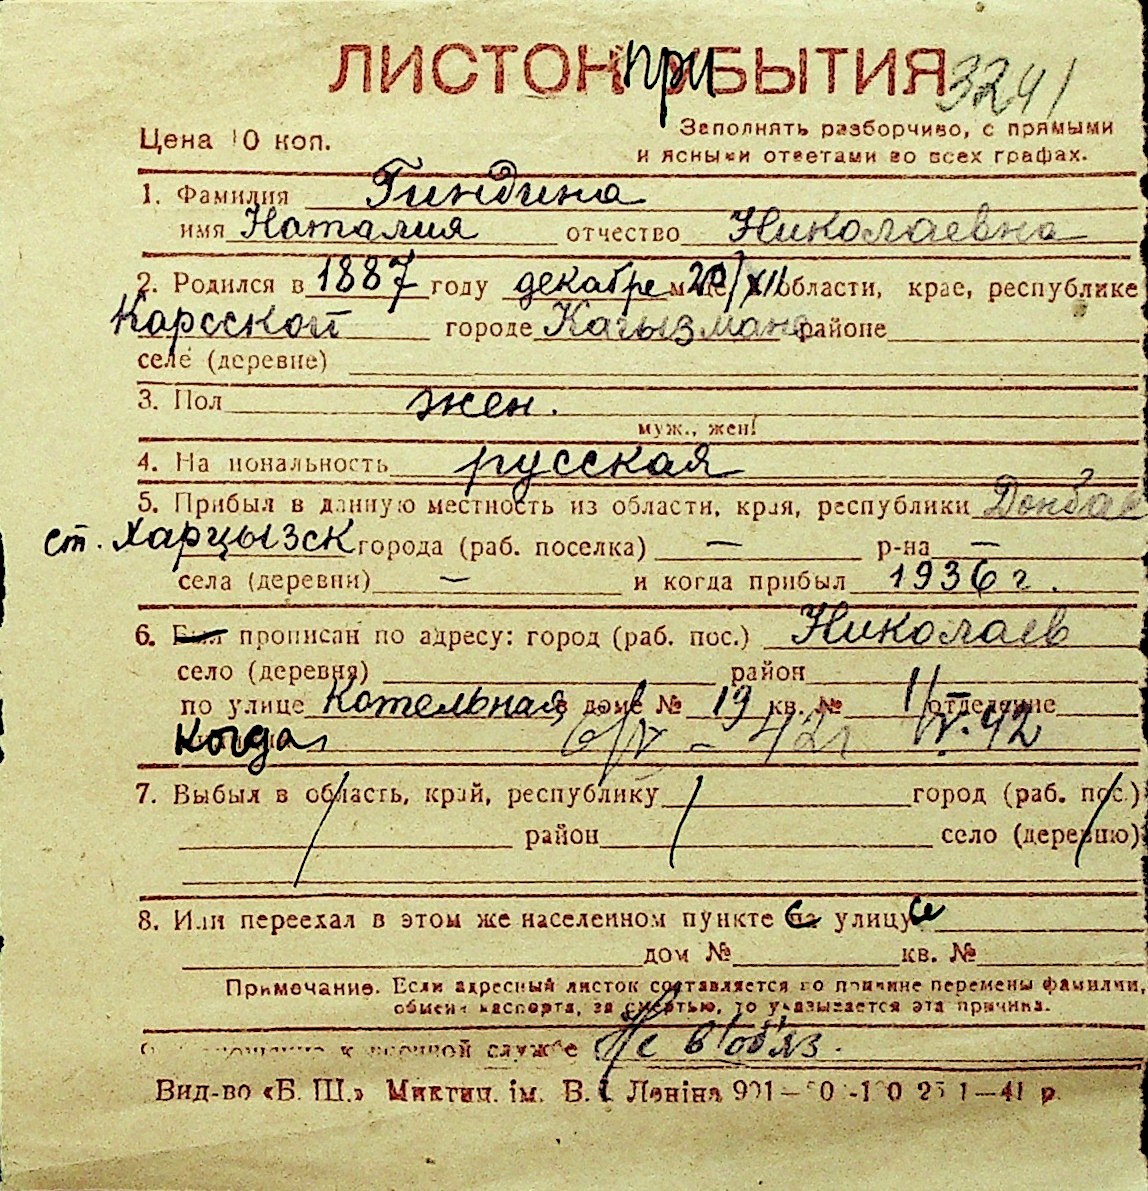 ЛИСТОК при БЫТИЯ 3241
Цена 10 коп.
Заполнять разборчиво, с прямыми
и ясными ответами во всех графах.
1. Фамилия Гиндина
имя Наталия отчество Николаевна
2. Родился в 1887 году декабре м-це 20/XII области, крае, республике
Карсской городе Кагызмане районе
селе (деревне)
3. Пол жен.
муж., жен.
4. На иональность русская
5. Прибыл в данную местность из области, края, республики Донбас
ст. Харцызск города (раб. поселка) — р-на —
села (деревни) — и когда прибыл 1936 г.
6. Был прописан по адресу: город (раб. пос.) Николаев
село (деревня) район
по улице Котельная в доме № 19 кв. № 1 отделение
Когда 6/V - 42 г. V. 42
7. Выбыл в область, край, республику город (раб. пос.)
район село (деревню)
8. Или переехал в этом же населенном пункте с улицы
дом № кв. №
Примечание. Если адресный листок составляется по причине перемены фамилии,
обмена паспорта, за смертью, то указывается эта причина.
к военной службе Не в/обяз.
Вид-во «Б. Ш.» Миктип. ім. В. І. Леніна